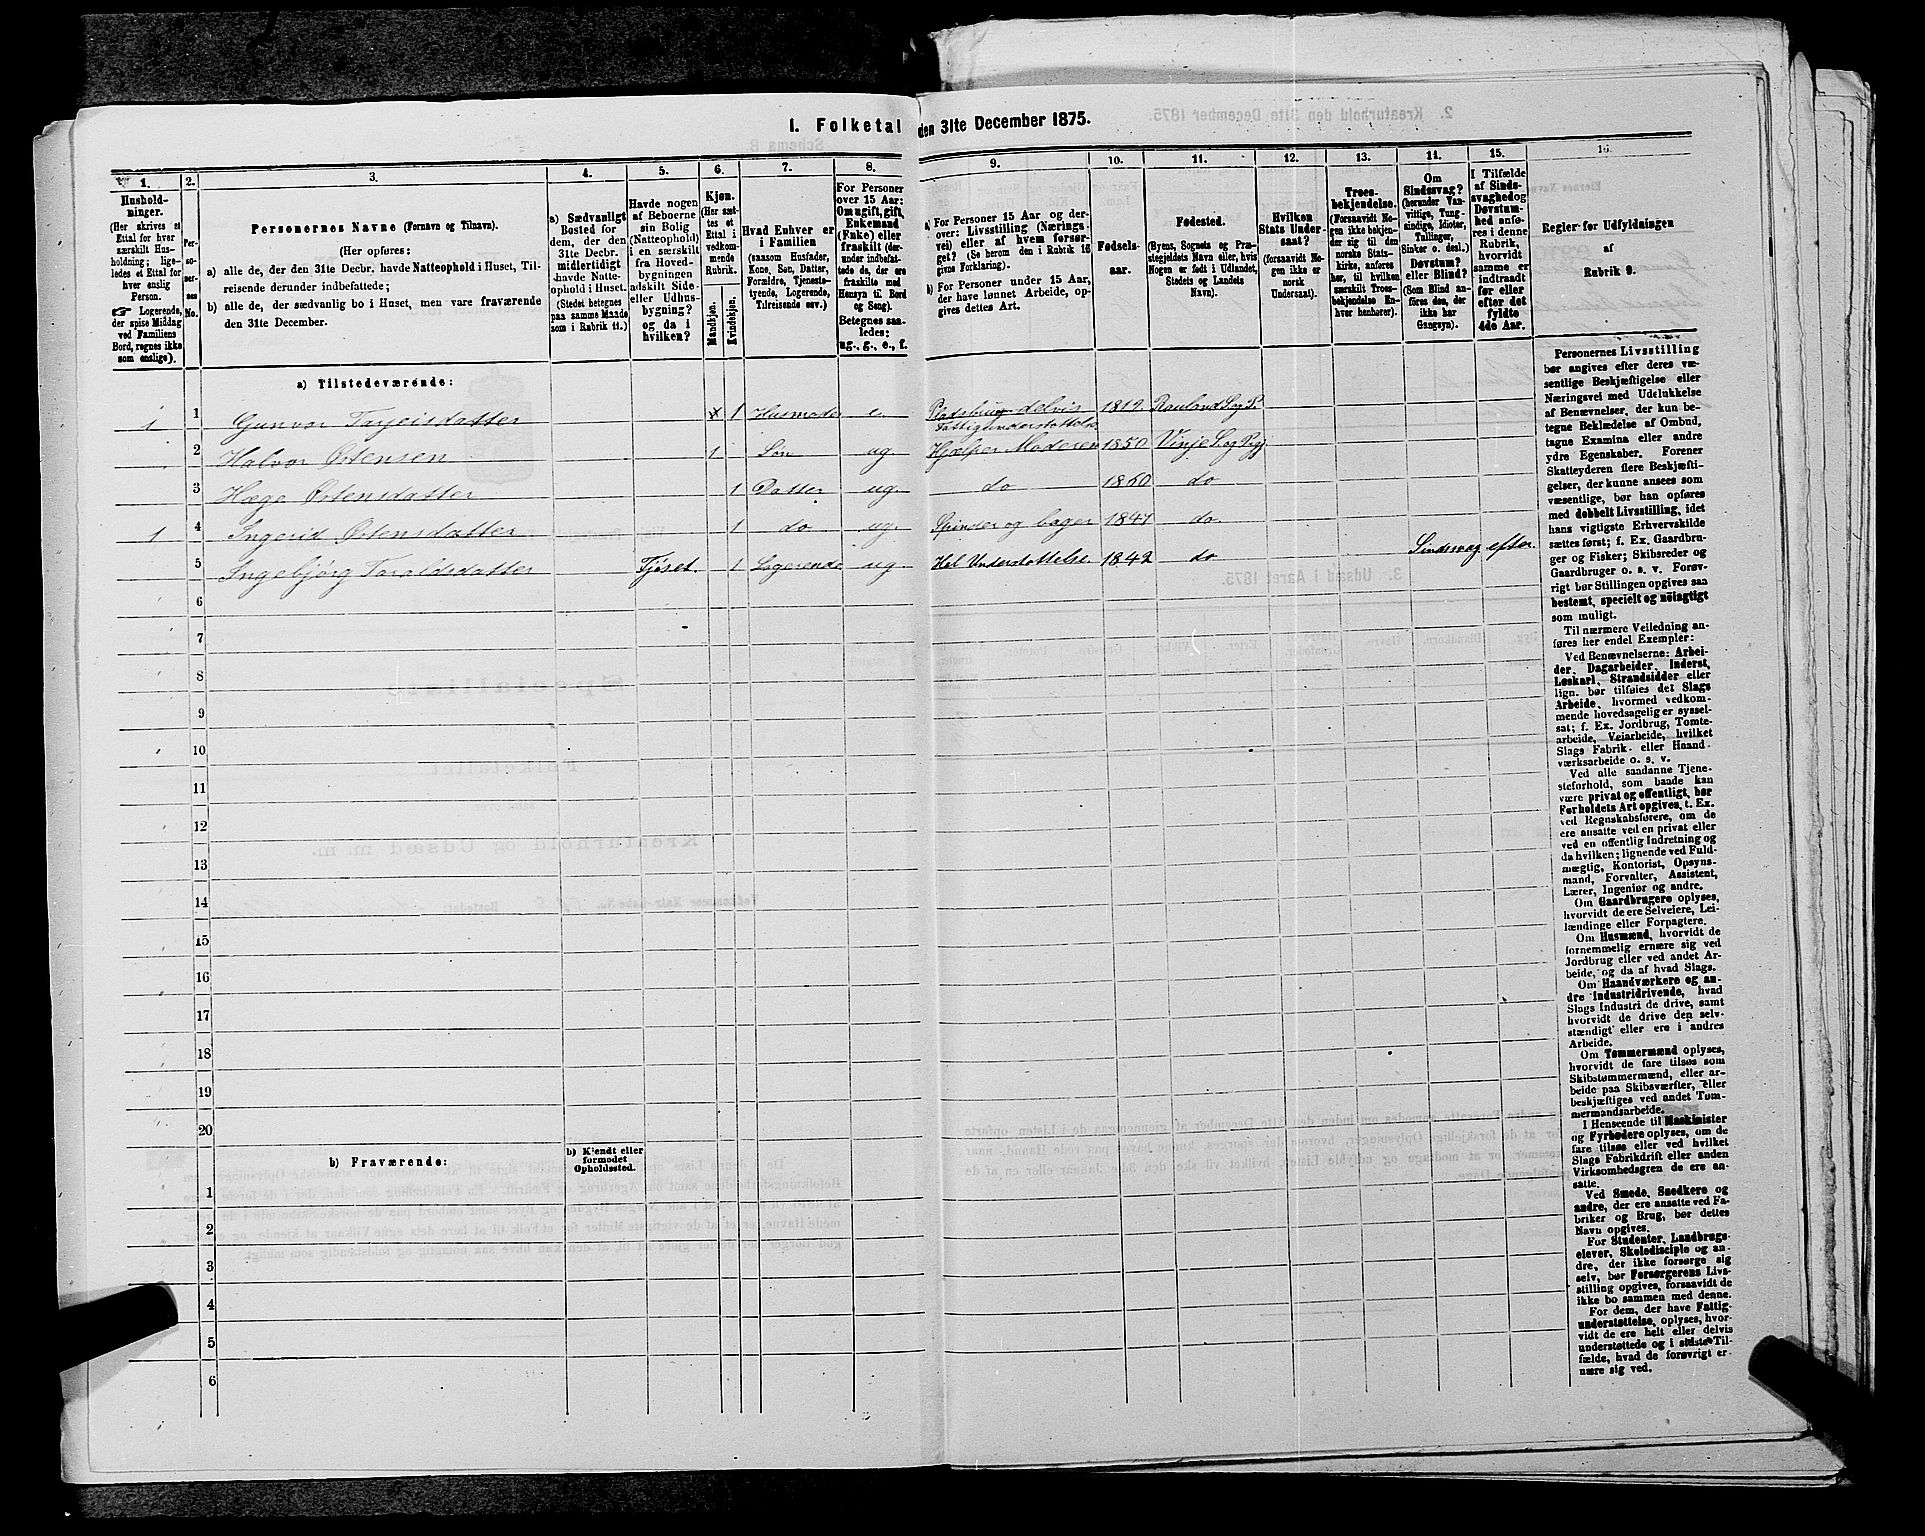 1. Folketal den 31te December 1875.
1. 2. 3. 4. 5. 6. 7. 8. 9. 10. 11. 12. 13. 14. 15. 16.
Hushold-
ninger.
(Her skrives et
Ettal for hver
særskilt Hus-
holdning; lige-
ledes et Ettal for
hver enslig
Person.
☛ Logerende,
der spise Middag
ved Familiens
Bord, regnes ikke
som enslige).
Per-
so-
ner-
nes
No.
Personernes Navne (Fornavn og Tilnavn).
(Her opføres:
a) alle de, der den 31te Decbr. havde Natteophold i Huset, Til-
reisende derunder indbefattede;
b) alle de, der sædvanlig bo i Huset, men vare fraværende
den 31te December.
a) Sædvanligt
Bosted for
dem, der den
31te Decbr.
midlertidigt
havde Natte-
ophold i Huset.
(Stedet betegnes
paa samme Maade
som i Rubrik 11.)
Havde nogen
af Beboerne
sin Bolig
(Natteophold)
i en særskilt
fra Hoved-
bygningen
adskilt Side-
eller Udhus-
bygning?
og da i
hvilken?
Kjøn.
(Her sæt-
tes et
Ettal i
vedkom-
mende
Rubrik.
Mandkjøn.
Kvindekjøn.
Hvad Enhver er
i Familien
(saasom Husfader,
Kone, Søn, Datter,
Forældre, Tjeneste-
tyende, Logerende,
Tilreisende osv.)
For Personer
over 15 Aar:
Om ugift, gift,
Enkemand
(Enke) eller
fraskilt (der-
under indbefat-
tede de, der ere
fraskilte med
Hensyn til Bord
og Seng).
Betegnes saa-
ledes:
ug., g., e., f.
a) For Personer 15 Aar og der-
over: Livsstilling (Nærings-
vei) eller af hvem forsør-
get? (Se herom den i Rubrik 16
givne Forklaring).
b) For Personer under 15 Aar,
der have lønnet Arbeide, op-
gives dettes Art.
Fødsels-
aar.
Fødested.
(Byens, Sognets og Præ-
stegjeldets Navn eller, hvis
Nogen er født i Udlandet,
Stedets og Landets
Navn).
Hvilken
Stats Under-
saat?
(forsaavidt No-
gen ikke er
norsk
Undersaat).
Troes-
bekjendelse.
(Forsaavidt No-
gen ikke bekjen-
der sig til den
norske Stats-
kirke, anføres
her, til hvilken
særskilt Troes-
bekjendelse En-
hver henhører).
Om
Sindssvag?
(herunder Van-
vittige, Tung-
sindige, Idioter,
Tullinger,
Sinker o. desl.)
Døvstum?
eller Blind?
(Som Blind an-
føres den, der
ikke har
Gangsyn).
I Tilfælde
af Sinds-
svaghed og
Døvstum-
hed anfø-
res i denne
Rubrik,
hvorvidt
samme er
indtraadt
før eller
efter det
fyldte
4de Aar.
Regler for Udfyldningen
af
Rubrik 9.
a) Tilstedeværende:
1 1 Gunvor Torjeisdatter 1 Husmoder e. delvis Fattigunderstøttelse 1812 Rauland S og P.
2 Halvor Østensen 1 Søn ug Hjælper Moderen 1850 Vinje S. og Prgj
3 Hæge Østensdatter 1 Datter ug. do 1860 do
1 4 Ingerid Østensdatter 1 do ug. Spinder og bager 1847 do.
5 Ingebjörg Taraldsdatter Fjöset. 1 Logerende ug Hel Understøttelse. 1842 do Sindsvag efter.
6
7
8
9
10
11
12
13
14
15
16
17
18
19
20
b) Fraværende:
b) Kjendt eller
formodet
Opholdssted.
1
2
3
4
5
6
Personernes Livsstilling
bør angives efter deres væ-
sentlige Beskjæftigelse eller
Næringsvei med Udelukkelse
af Benævnelser, der kun be-
tegne Beklædelse af Ombud,
tagne Examina eller andre
ydre Egenskaber. Forener
Skatteyderen flere Beskjæfti-
gelser, der kunne ansees som
væsentlige, bør han opføres
med dobbelt Livsstilling, idet
hans vigtigste Erhvervskilde
sættes først; f. Ex. Gaardbru-
ger og Fisker; Skibsreder og
Gaardbruger o. s. v. Forøv-
rigt bør Stillingen opgives saa
bestemt, specielt og nöiagtigt
som muligt.
Til nærmere Veiledning an-
føres her endel Exempler:
Ved Benævnelserne: Arbei-
der, Dagarbeider, Inderst,
Løskarl, Strandsidder eller
lign. bør tilføies det Slags
Arbeide, hvormed vedkom-
mende hovedsagelig er syssel-
sat; f. Ex. Jordbrug, Tomte-
arbeide, Veiarbeide, hvilket
Slags Fabrik- eller Haand-
værksarbeide o. s. v.
Ved alle saadanne Tjene-
steforhold, som baade kan
være privat og offentligt, bør
Forholdets Art opgives, t. Ex.
ved Regnskabsførere, om de
ere ansatte ved en privat eller
ved en offentlig Indretning og
da hvilken; lignende ved Fuld-
mægtig, Kontorist, Opsyns-
mand, Forvalter, Assistent,
Lærer, Ingeniør og andre.
Om Gaardbrugere oplyses,
hvorvidt de ere Selveiere, Lei-
lændinge eller Forpagtere.
Om Husmænd, hvorvidt de
fornemmelig ernære sig ved
Jordbrug eller ved andet Ar-
beide, og da af hvad Slags.
Om Haandværkere og an-
dre Industridrivende, hvad
Slags Industri de drive, samt
hvorvidt de drive den selv-
stændigt eller ere i andres
Arbeide.
Om Tømmermænd oplyses,
hvorvidt de fare tilsøs som
Skibstømmermænd, eller ar-
beide paa Skibsværfter, eller
beskjæftiges ved andet Tøm-
mermandsarbeide.
I Henseende til Maskinister
og Fyrbødere oplyses, om de
fare tilsøs eller ved hvilket
Slags Fabrikdrift eller anden
Virksomhedsgren de ere an-
satte.
Ved Smede, Snedkere og
andre, der ere ansatte ved Fa-
briker og Brug, bør dettes
Navn opgives.
For Studenter, Landbrugs-
elever, Skoledisciple og an-
dre, der ikke forsørge sig
selv, bør Forsørgerens Livs-
stilling opgives, forsaavidt de
ikke bo sammen med denne.
For dem, der have Fattig-
understøttelse, oplyses, hvor-
vidt de ere helt eller delvis
understøttede og i sidste Til-
fælde, hvad de forøvrigt er-
nære sig ved.